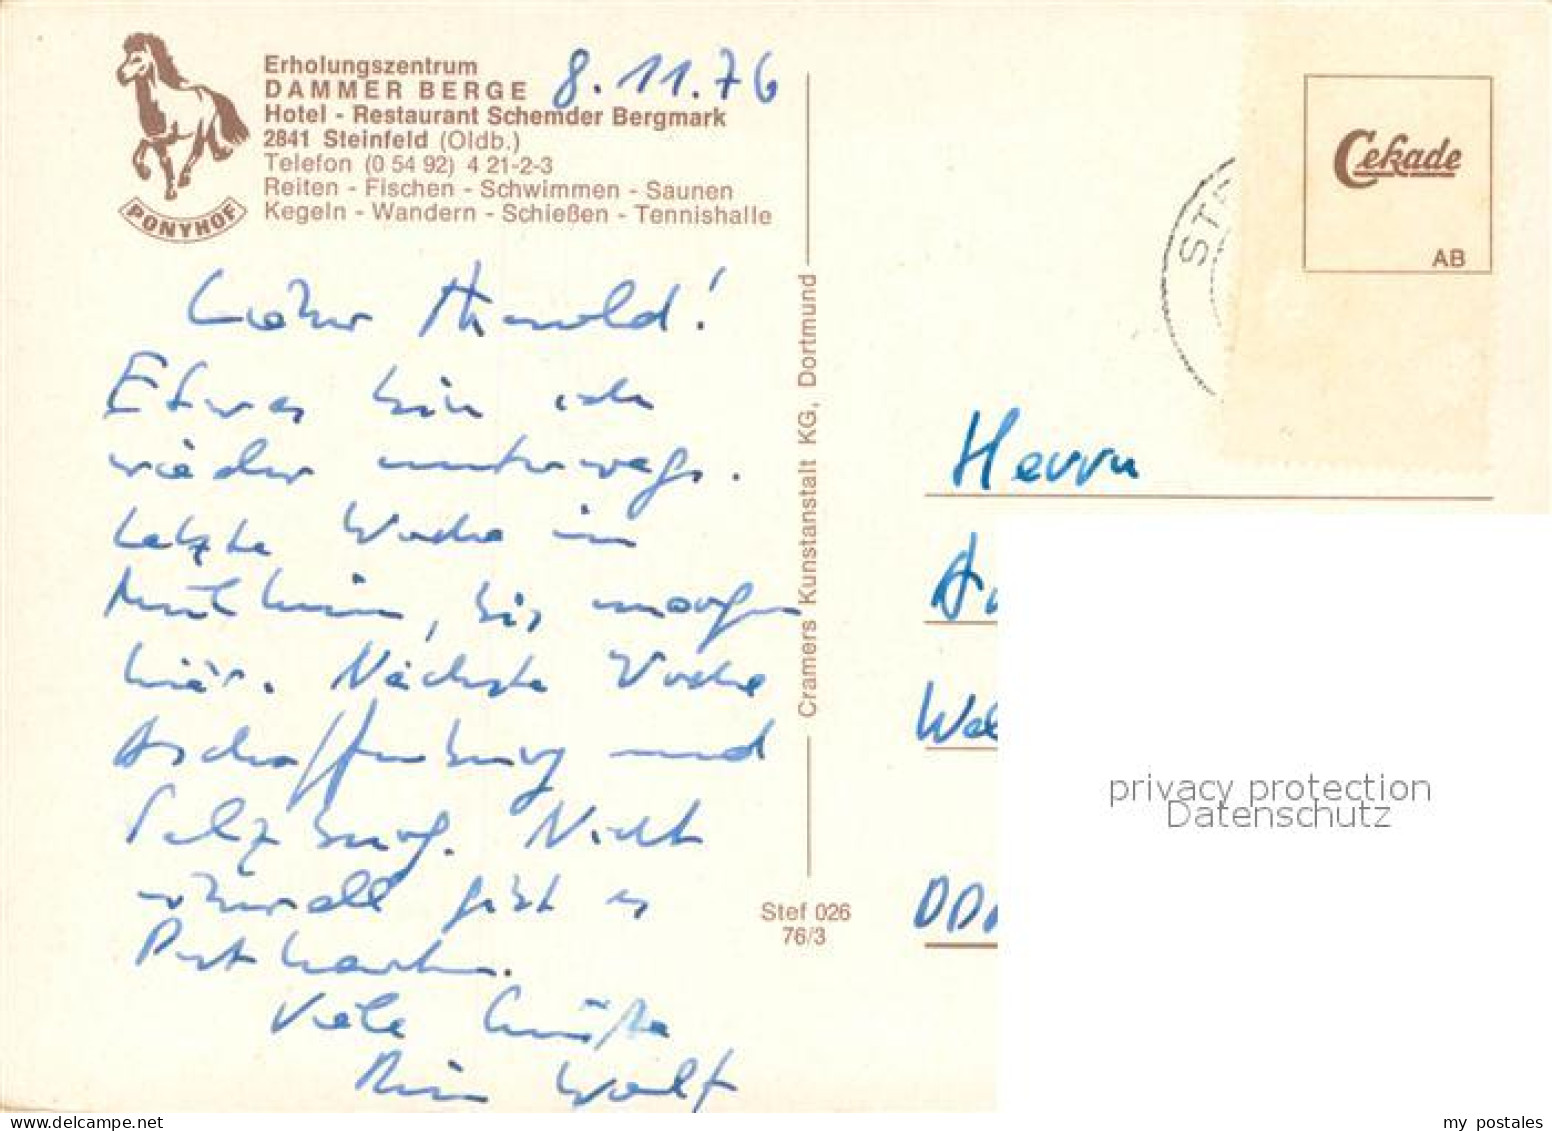 Erholungszentrum
DAMMER BERGE
8.11.76
Hotel - Restaurant Schemder Bergmark
2841 Steinfeld (Oldb.)
Telefon (0 54 92) 4 21-2-3
Reiten - Fischen - Schwimmen - Saunen
Kegeln - Wandern - Schießen - Tennishalle
PONYHOF
Lieber Harald!
Etwas bin ich
wieder unterwegs.
Letzte Woche in
Mülheim, bis morgen
hier. Nächste Woche
Aschaffenburg und
Salzburg. Nicht
überall gibt es
Postkarten.
Viele Grüße
Wolf
Cramers Kunstanstalt KG, Dortmund
Stef 026
76/3
Cekade
AB
ST
Herrn
privacy protection
Datenschutz
my postales